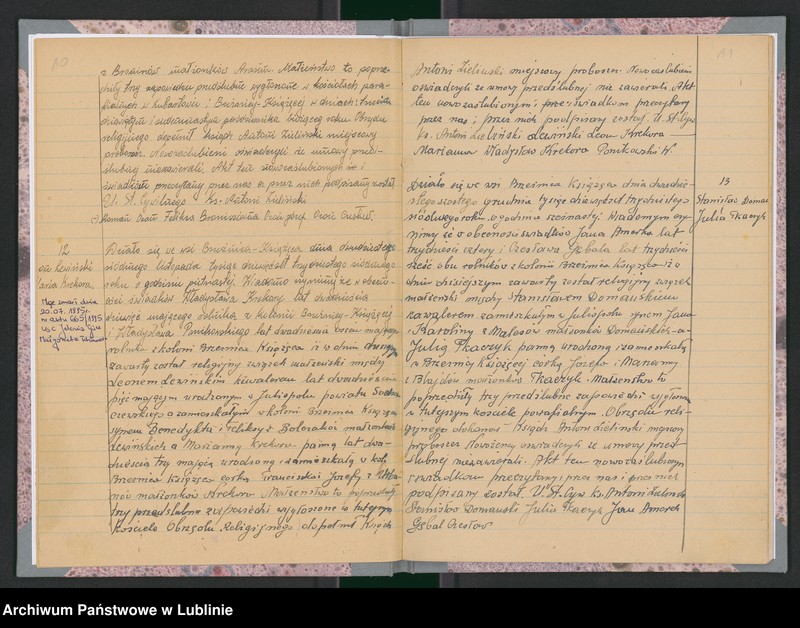 10
z Broźinów małżonków Arasim. Małżeństwo to poprze-
dziły trzy zapowiedzi przedślubne wygłoszone w kościołach para-
fialnych w Lubartowie i Brzeźnicy-Książęcej w dniach:
bieżącego roku. Obrzędu
religijnego dopełnił ksiądz Antoni Zieliński miejscowy
proboszcz. Nowozaślubieni oświadczyli że umowy przed-
ślubnej nie zawierali. Akt ten nowozaślubionym i
świadkom przeczytany przez nas a przez nich podpisany został
U. St. Cywilnego Ks. Antoni Zieliński
Roman Feliksa Bronisława Józef
12
Leon Lewiński
Maria Krekora.
Mąż zmarł dnia
20.07.1995 r.
nr aktu 665/1995
USC Jelenia Góra
Działo się we wsi Brzeźnica-Książęca dnia dwudziestego
siódmego listopada tysiąc dziewięćset trzydziestego siódmego
roku o godzinie piętnastej. Wiadomo czynimy że w obecno-
ści świadków Władysława Krekory lat dwadzieścia
dziewięć mającego rolnika z kolonii Brzeźnicy-Książęcej
i Władysława Ponikowskiego lat dwadzieścia osiem mającego
rolnika z kolonii Brzeźnica Książęca iż w dniu dzisiejszym
zawarty został religijny związek małżeński między
Leonem Lewińskim kawalerem lat dwadzieścia
pięć mającym urodzonym w Juliopolu powiatu Socha-
czewskiego a zamieszkałym w kolonii Brzeźnica Książęca
synem Benedykta i Feliksy z małżonków
Lewińskich a Marianną Krekora panną lat dwa-
dzieścia trzy mającą urodzoną i zamieszkałą w kol.
Brzeźnica Książęca córką Franciszka i Józefy z
małżonków Krekora. Małżeństwo to poprzedziły
trzy przedślubne zapowiedzi wygłoszone w tutejszym
kościele. Obrzędu Religijnego dopełnił Ksiądz
11
Antoni Zieliński miejscowy proboszcz. Nowozaślubieni
oświadczyli że umowy przedślubnej nie zawierali. Akt
ten nowozaślubionym i świadkom przeczytany
przez nas i przez nich podpisany został. U. St. Cyw
Ks. Antoni Zieliński Lewiński Leon Krekora
Marianna Władysław Krekora Ponikowski W.
13
Stanisław Domań
Julia Tkaczyk
Działo się we wsi Brzeźnica Książęca dnia dwudzie-
stego szóstego grudnia tysiąc dziewięćset trzydziestego
siódmego roku o godzinie szesnastej. Wiadomym czy-
nimy że w obecności świadków Jana Amerka lat
trzydzieści cztery i Czesława Gębala lat trzydzieści
sześć obu rolników z kolonii Brzeźnica Książęca iż w
dniu dzisiejszym zawarty został religijny związek
małżeński między Stanisławem Domańskim
kawalerem zamieszkałym w Juliopolu synem Jana
i Karoliny z małżonków Domańskich-a-
Julią Tkaczyk panną urodzoną i zamieszkałą
w Brzeźnicy Książęcej córką Józefa i Marianny
z małżonków Tkaczyk. Małżeństwo to
poprzedziły trzy przedślubne zapowiedzi wygłoszone
w tutejszym kościele parafialnym. Obrzędu reli-
gijnego dokonał Ksiądz Antoni Zieliński miejscowy
proboszcz. Nowożeńcy oświadczyli że umowy przed
ślubnej nie zawierali. Akt ten nowozaślubionym
i świadkom przeczytany przez nas i przez nich
podpisany został. U. St. Cyw. Ks. Antoni Zieliński
Stanisław Domański Julia Tkaczyk Jan Amerek
Gębal Czesław
Archiwum Państwowe w Lublinie